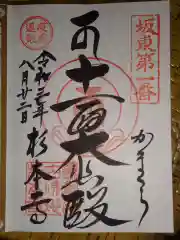 坂東第一番
かまくら
十一面大悲殿
令和三年
八月廿二日
杉本寺